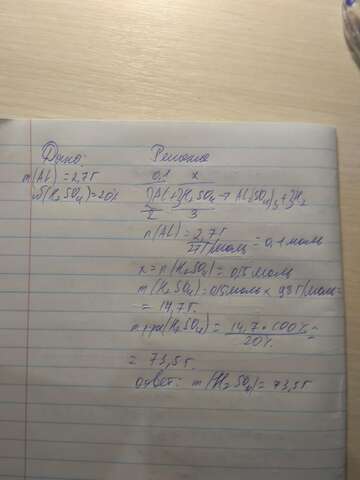 Дано: Решение
m(Al) = 2,7г 0,1 x
ω(H₂SO₄) = 20% 2Al + 3H₂SO₄ → Al₂(SO₄)₃ + 3H₂
2 3
n(Al) = 2,7г / 27г/моль = 0,1 моль
x = n(H₂SO₄) = 0,15 моль
m(H₂SO₄) = 0,15моль × 98г/моль =
= 14,7г.
m р-ра(H₂SO₄) = 14,7 · 100% / 20% =
= 73,5г.
ответ: m(H₂SO₄) = 73,5г